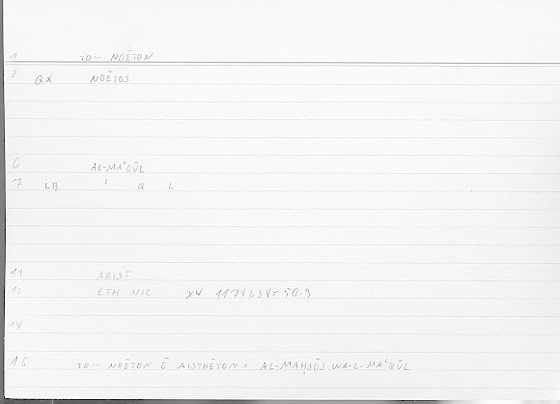 1 TO– NOĒTON
2 QX NOĒTOS
6 AL-MAʿQŪL
7 LB ʿ Q L
11 ARIST
12 ETH NIC X4 1174b34=50.9
14
16 TO– NOĒTON Ē AISTHĒTON= AL-MAḤSŪS WA-L-MAʿQŪL